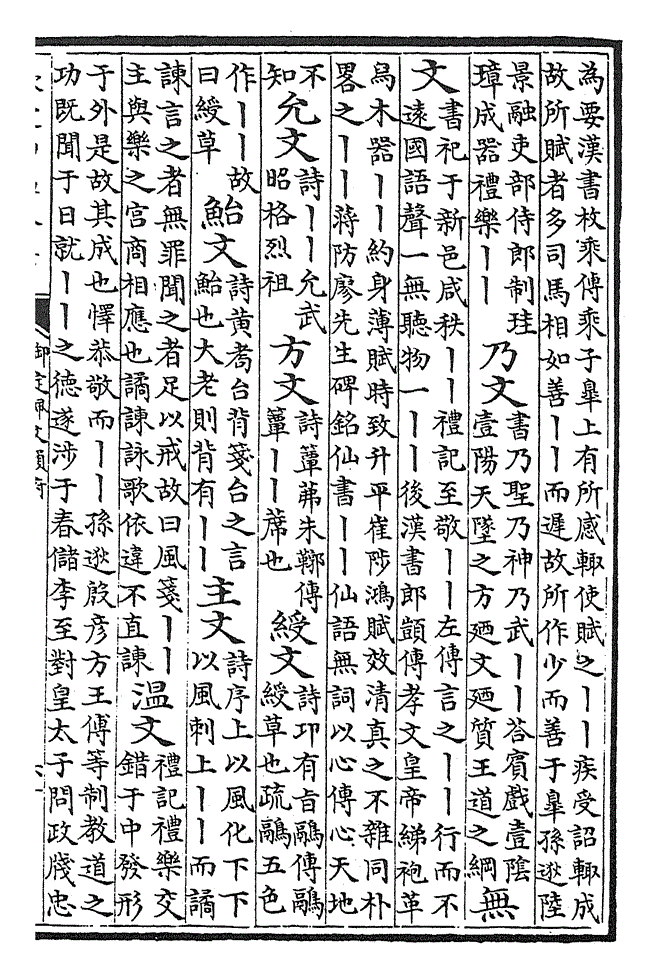 為要漢書枚乘傳乘子臯上有所感輒使賦之丨丨疾受詔輒成
故所賦者多司馬相如善丨丨而遲故所作少而善于臯孫逖陸
景融吏部侍郎制珪
璋成器禮樂丨丨
乃文
書乃聖乃神乃武丨丨荅賓戲壹陰
壹陽天墜之方廼文廼質王道之綱
無
文
書祀于新邑咸秩丨丨禮記至敬丨丨左傳言之丨丨行而不
遠國語聲一無聽物一丨丨後漢書郎顗傳孝文皇帝綈袍革
舄木器丨丨約身薄賦時致升平崔陟鴻賦效清真之不雜同朴
畧之丨丨蔣防廖先生碑銘仙書丨丨仙語無詞以心傳心天地
不
知
允文
詩丨丨允武
昭格烈祖
方文
詩簟茀朱鞹傳
簟丨丨蓆也
綬文
詩卭有旨鷊傳鷊
綬草也疏鷊五色
作丨丨故
曰綬草
鮐文
詩黄耉台背箋台之言
鮐也大老則背有丨丨
主文
詩序上以風化下下
以風刺上丨丨而譎
諫言之者無罪聞之者足以戒故曰風箋丨丨
主與樂之宫商相應也譎諫詠歌依違不直諫
温文
禮記禮樂交
錯于中發形
于外是故其成也懌恭敬而丨丨孫逖殷彦方王傅等制教道之
功既聞于日就丨丨之德遂涉于春儲李至對皇太子問政牋忠